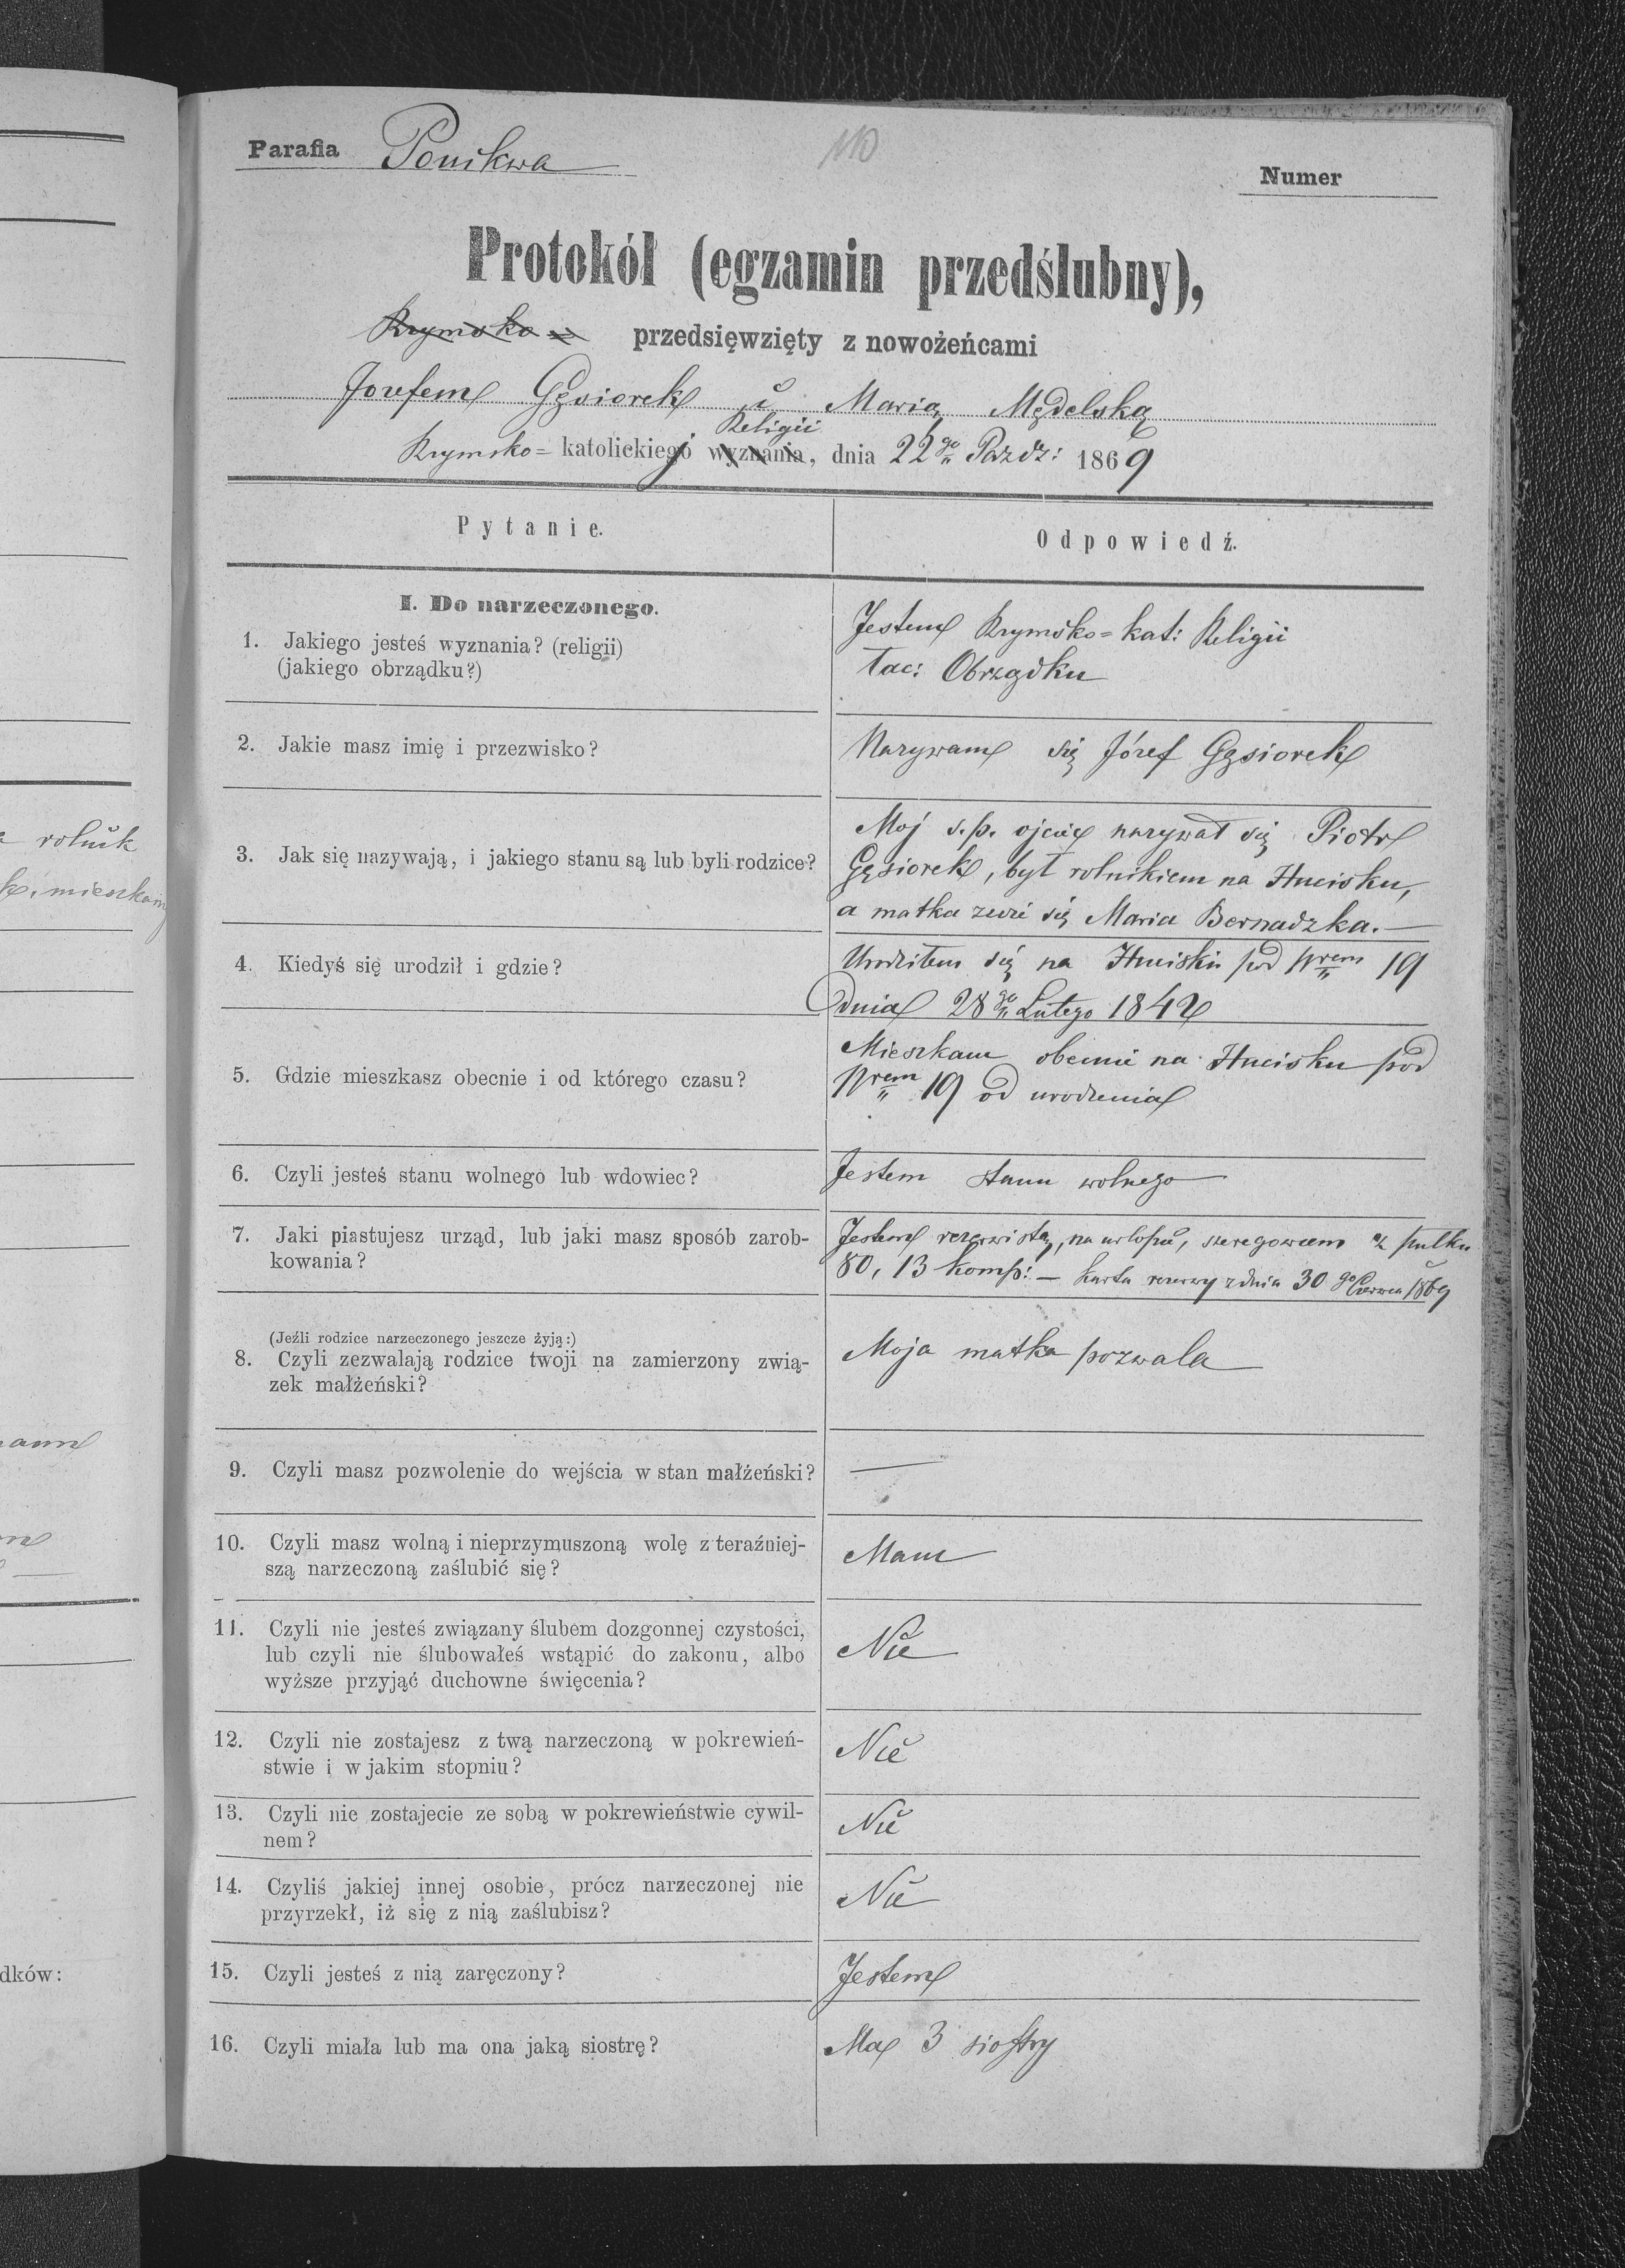 Parafia Ponikwa
110
Numer
Protokół (egzamin przedślubny),
Rzymsko = przedsięwzięty z nowożeńcami
Józefem Gąsiorek i Marią Mędelską
Religii
Rzymsko = katolickiej wyznania, dnia 22go Paźdz: 1869
Pytanie.
Odpowiedź.
I. Do narzeczonego.
1. Jakiego jesteś wyznania? (religii)
(jakiego obrządku?)
Jestem Rzymsko = kat: Religii
łac: Obrządku
2. Jakie masz imię i przezwisko?
Nazywam się Józef Gąsiorek
3. Jak się nazywają, i jakiego stanu są lub byli rodzice?
Moj s.p. ojciec nazywał się Piotr
Gąsiorek, był rolnikiem na Hucisku,
a matka zwie się Maria Bernadzka. —
4. Kiedyś się urodził i gdzie?
Urodziłem się na Hucisku pod Nrem 19
dnia 28go Lutego 1842
5. Gdzie mieszkasz obecnie i od którego czasu?
Mieszkam obecnie na Hucisku pod
Nrem 19 od urodzenia
6. Czyli jesteś stanu wolnego lub wdowiec?
Jestem stanu wolnego
7. Jaki piastujesz urząd, lub jaki masz sposób zarob-
kowania?
Jestem rezerwistą, na urlopie, szeregowcem z pułku
80, 13 komp: — karta rezerwy z dnia 30go Czerwca 1869
(Jeźli rodzice narzeczonego jeszcze żyją:)
8. Czyli zezwalają rodzice twoji na zamierzony zwią-
zek małżeński?
Moja matka pozwala
9. Czyli masz pozwolenie do wejścia w stan małżeński?
—
10. Czyli masz wolną i nieprzymuszoną wolę z teraźniej-
szą narzeczoną zaślubić się?
Mam
11. Czyli nie jesteś związany ślubem dozgonnej czystości,
lub czyli nie ślubowałeś wstąpić do zakonu, albo
wyższe przyjąć duchowne święcenia?
Nie
12. Czyli nie zostajesz z twą narzeczoną w pokrewień-
stwie i w jakim stopniu?
Nie
13. Czyli nie zostajecie ze sobą w pokrewieństwie cywil-
nem?
Nie
14. Czyliś jakiej innej osobie, prócz narzeczonej nie
przyrzekł, iż się z nią zaślubisz?
Nie
15. Czyli jesteś z nią zaręczony?
Jestem
16. Czyli miała lub ma ona jaką siostrę?
Ma 3 siostry
rolnik
dków: